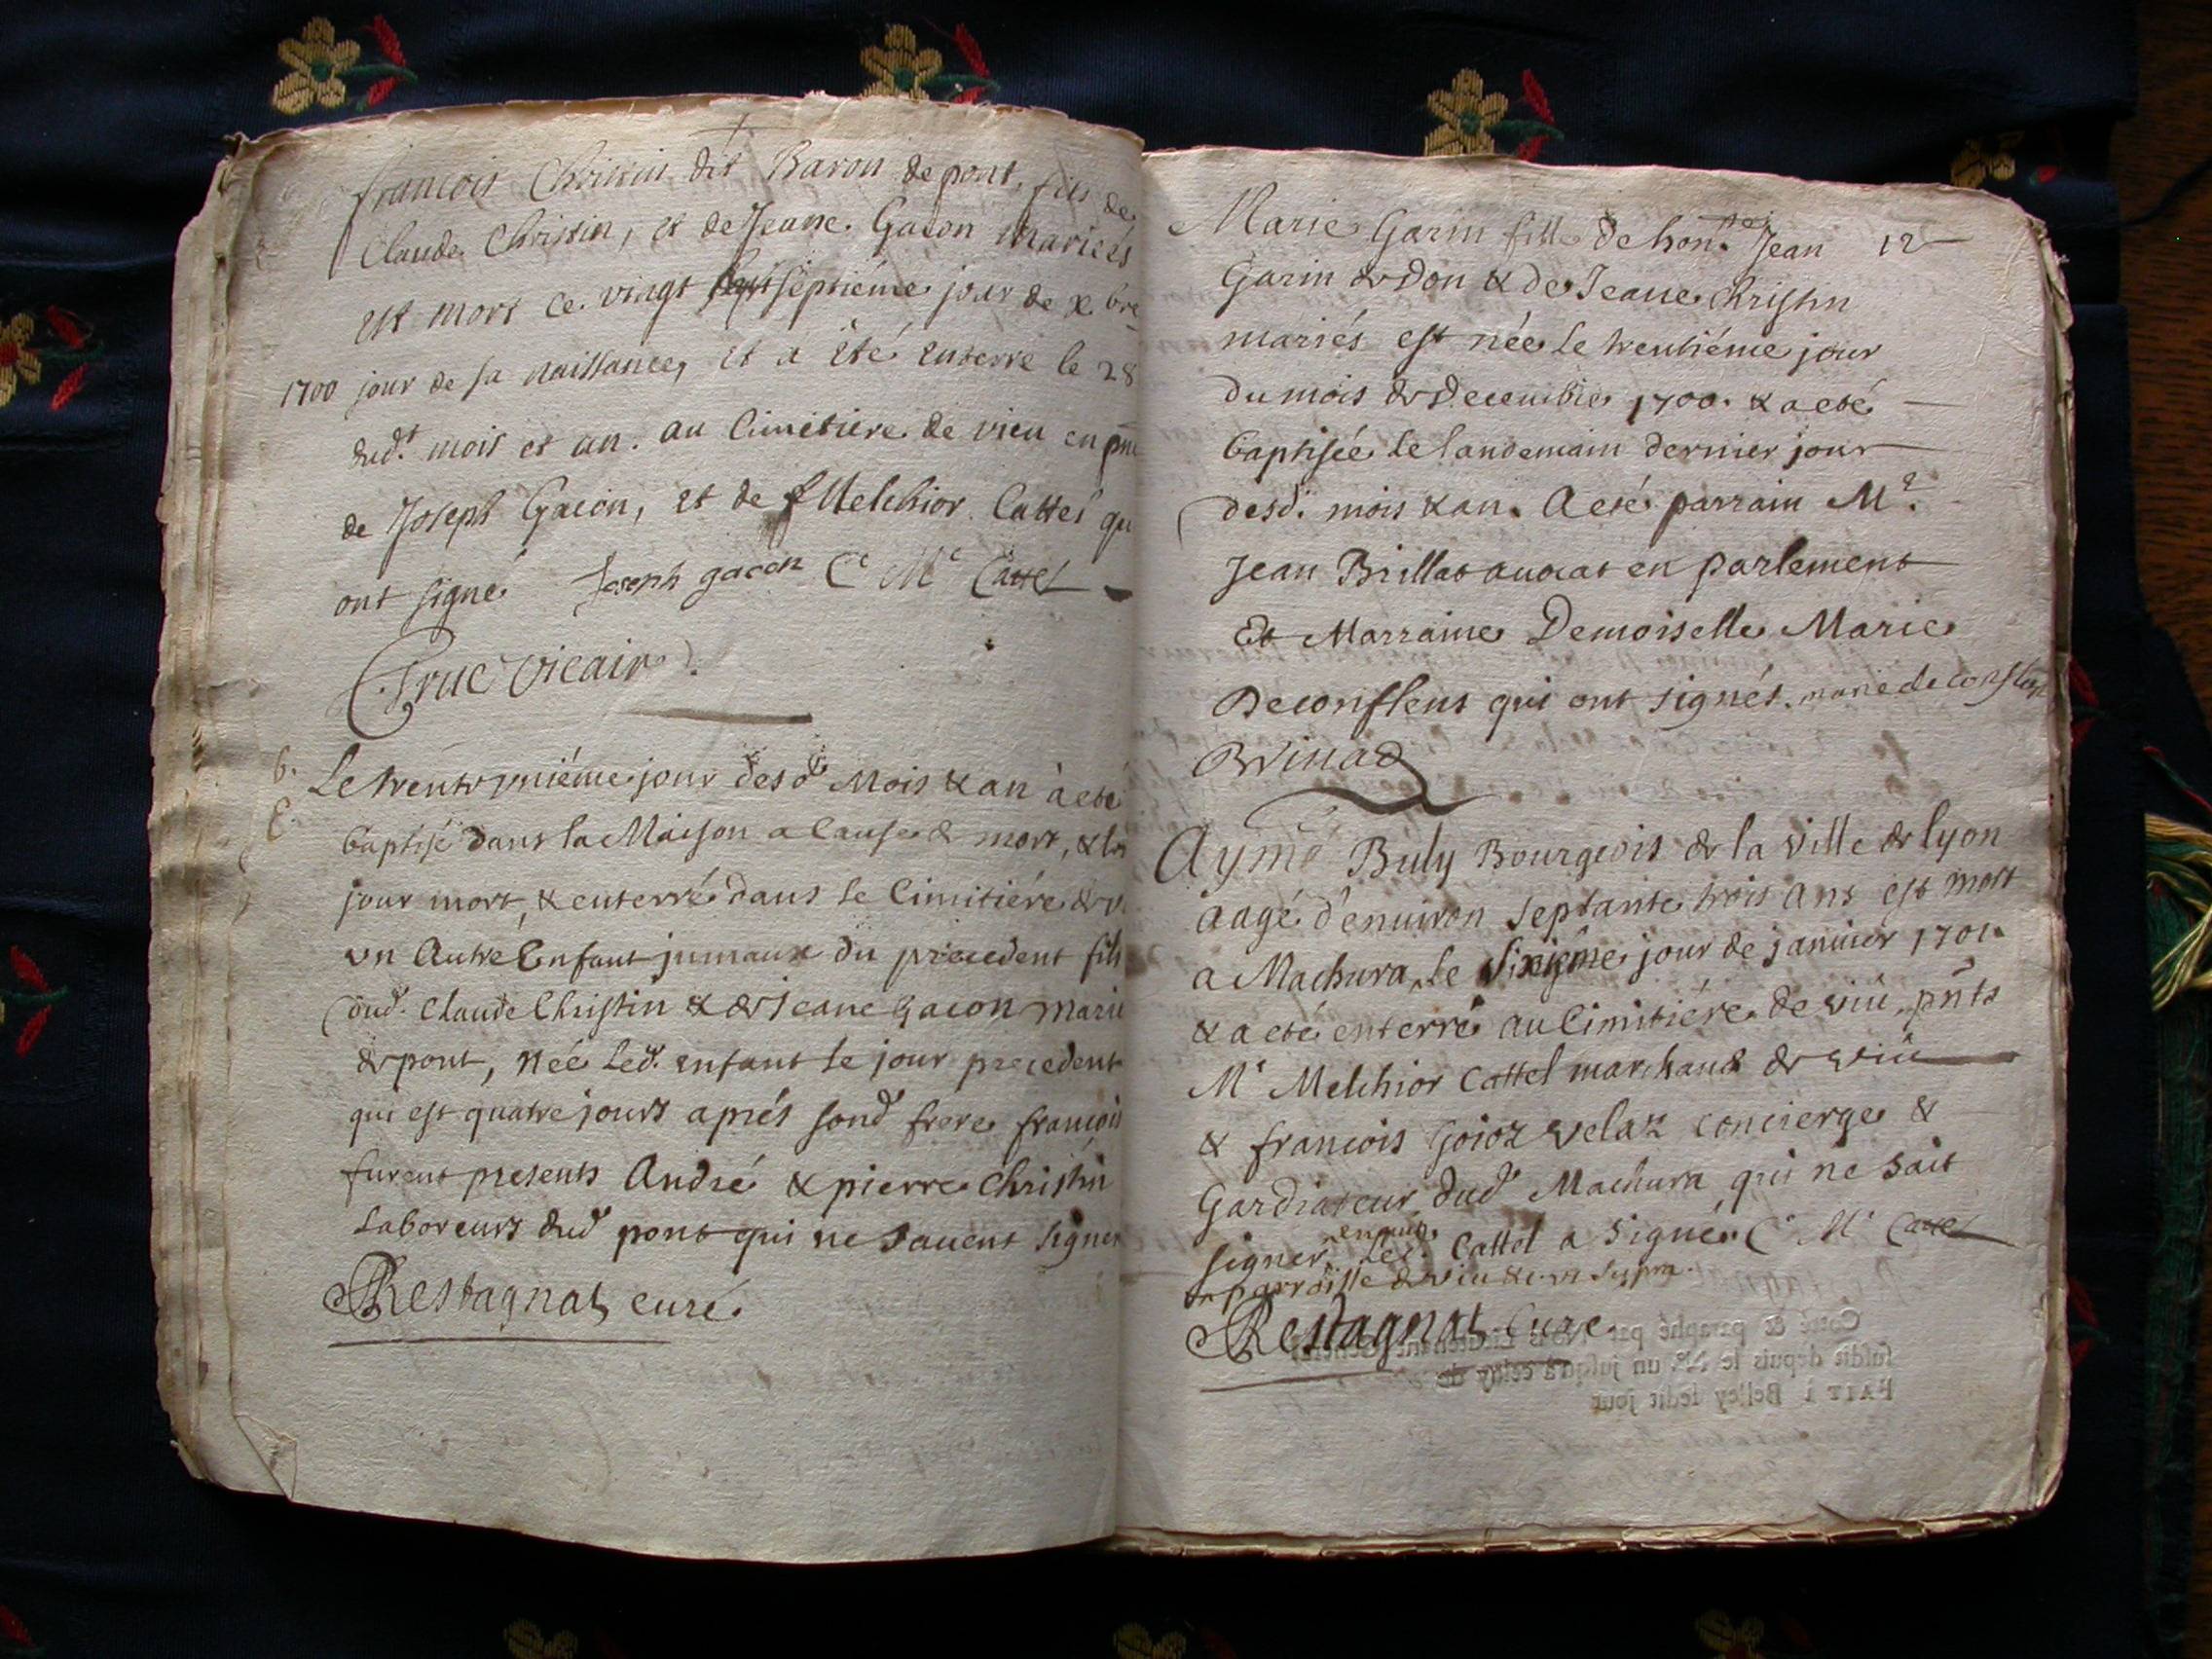 françois Christin dit Baron de pont, fils de
Claude Christin, et de Jeane Gacon Mariés
est mort ce vingt septiéme jour de x.bre
1700 jour de sa naissance, et a êté enterre le 28
dud.t mois et an. au Cimétiére de vieu en pnc
de Joseph Gacon, et de Melchior Cattel qu
ont signé Joseph gacon C.e M.e Cattel
Truc vicaire.
b. Le trente vniéme jour desd. Mois & an à eté
E. baptisé dans la Maison a Cause de mort, &
jour mort, & enterré dans le Cimitiére de v
vn Autre Enfant jumaux du precedent fils
dud. Claude Christin & de Jeane Gacon marié
de pont, née led. enfant le jour precedent
qui est quatre jours aprés sond frere françois
furent presents André & pierre Christin
Laboreurs dud pont qui ne sauent signer
Restagnat curé.
Marie Garin fille de hon.ne Jean 12
Garin de Don & de Jeane Christin
mariés est née le trentiéme jour
du mois de Decembre 1700. & a eté
baptisée le landemain dernier jour
desd. mois & an. A eté parrain M.e
Jean Brillat auocat en parlement
Et Marraine Demoiselle Marie
Deconflens qui ont signés. marie de conflens
Brillad
Aymé Buly Bourgeois de la ville de lyon
aagé d'enuiron septante trois ans est mort
a Machura, le sixiéme jour de januier 1701.
& a eté enterré au Cimitiére de viû, pñts
M.e Melchior Cattel marchand de viû
& francois Goioz velaz concierge &
Gardiateur dud Machura qui ne sait
signer enquis Led. Cattel a signé. C.e M.e Cattel
en parroisse de viu &c. vt supra.
Restagnat Cure.
Coté & paraphé par Nous Lieutenant General
susdit depuis le Nº. un jusqu'à celuy de
FAIT à Belley ledit jour